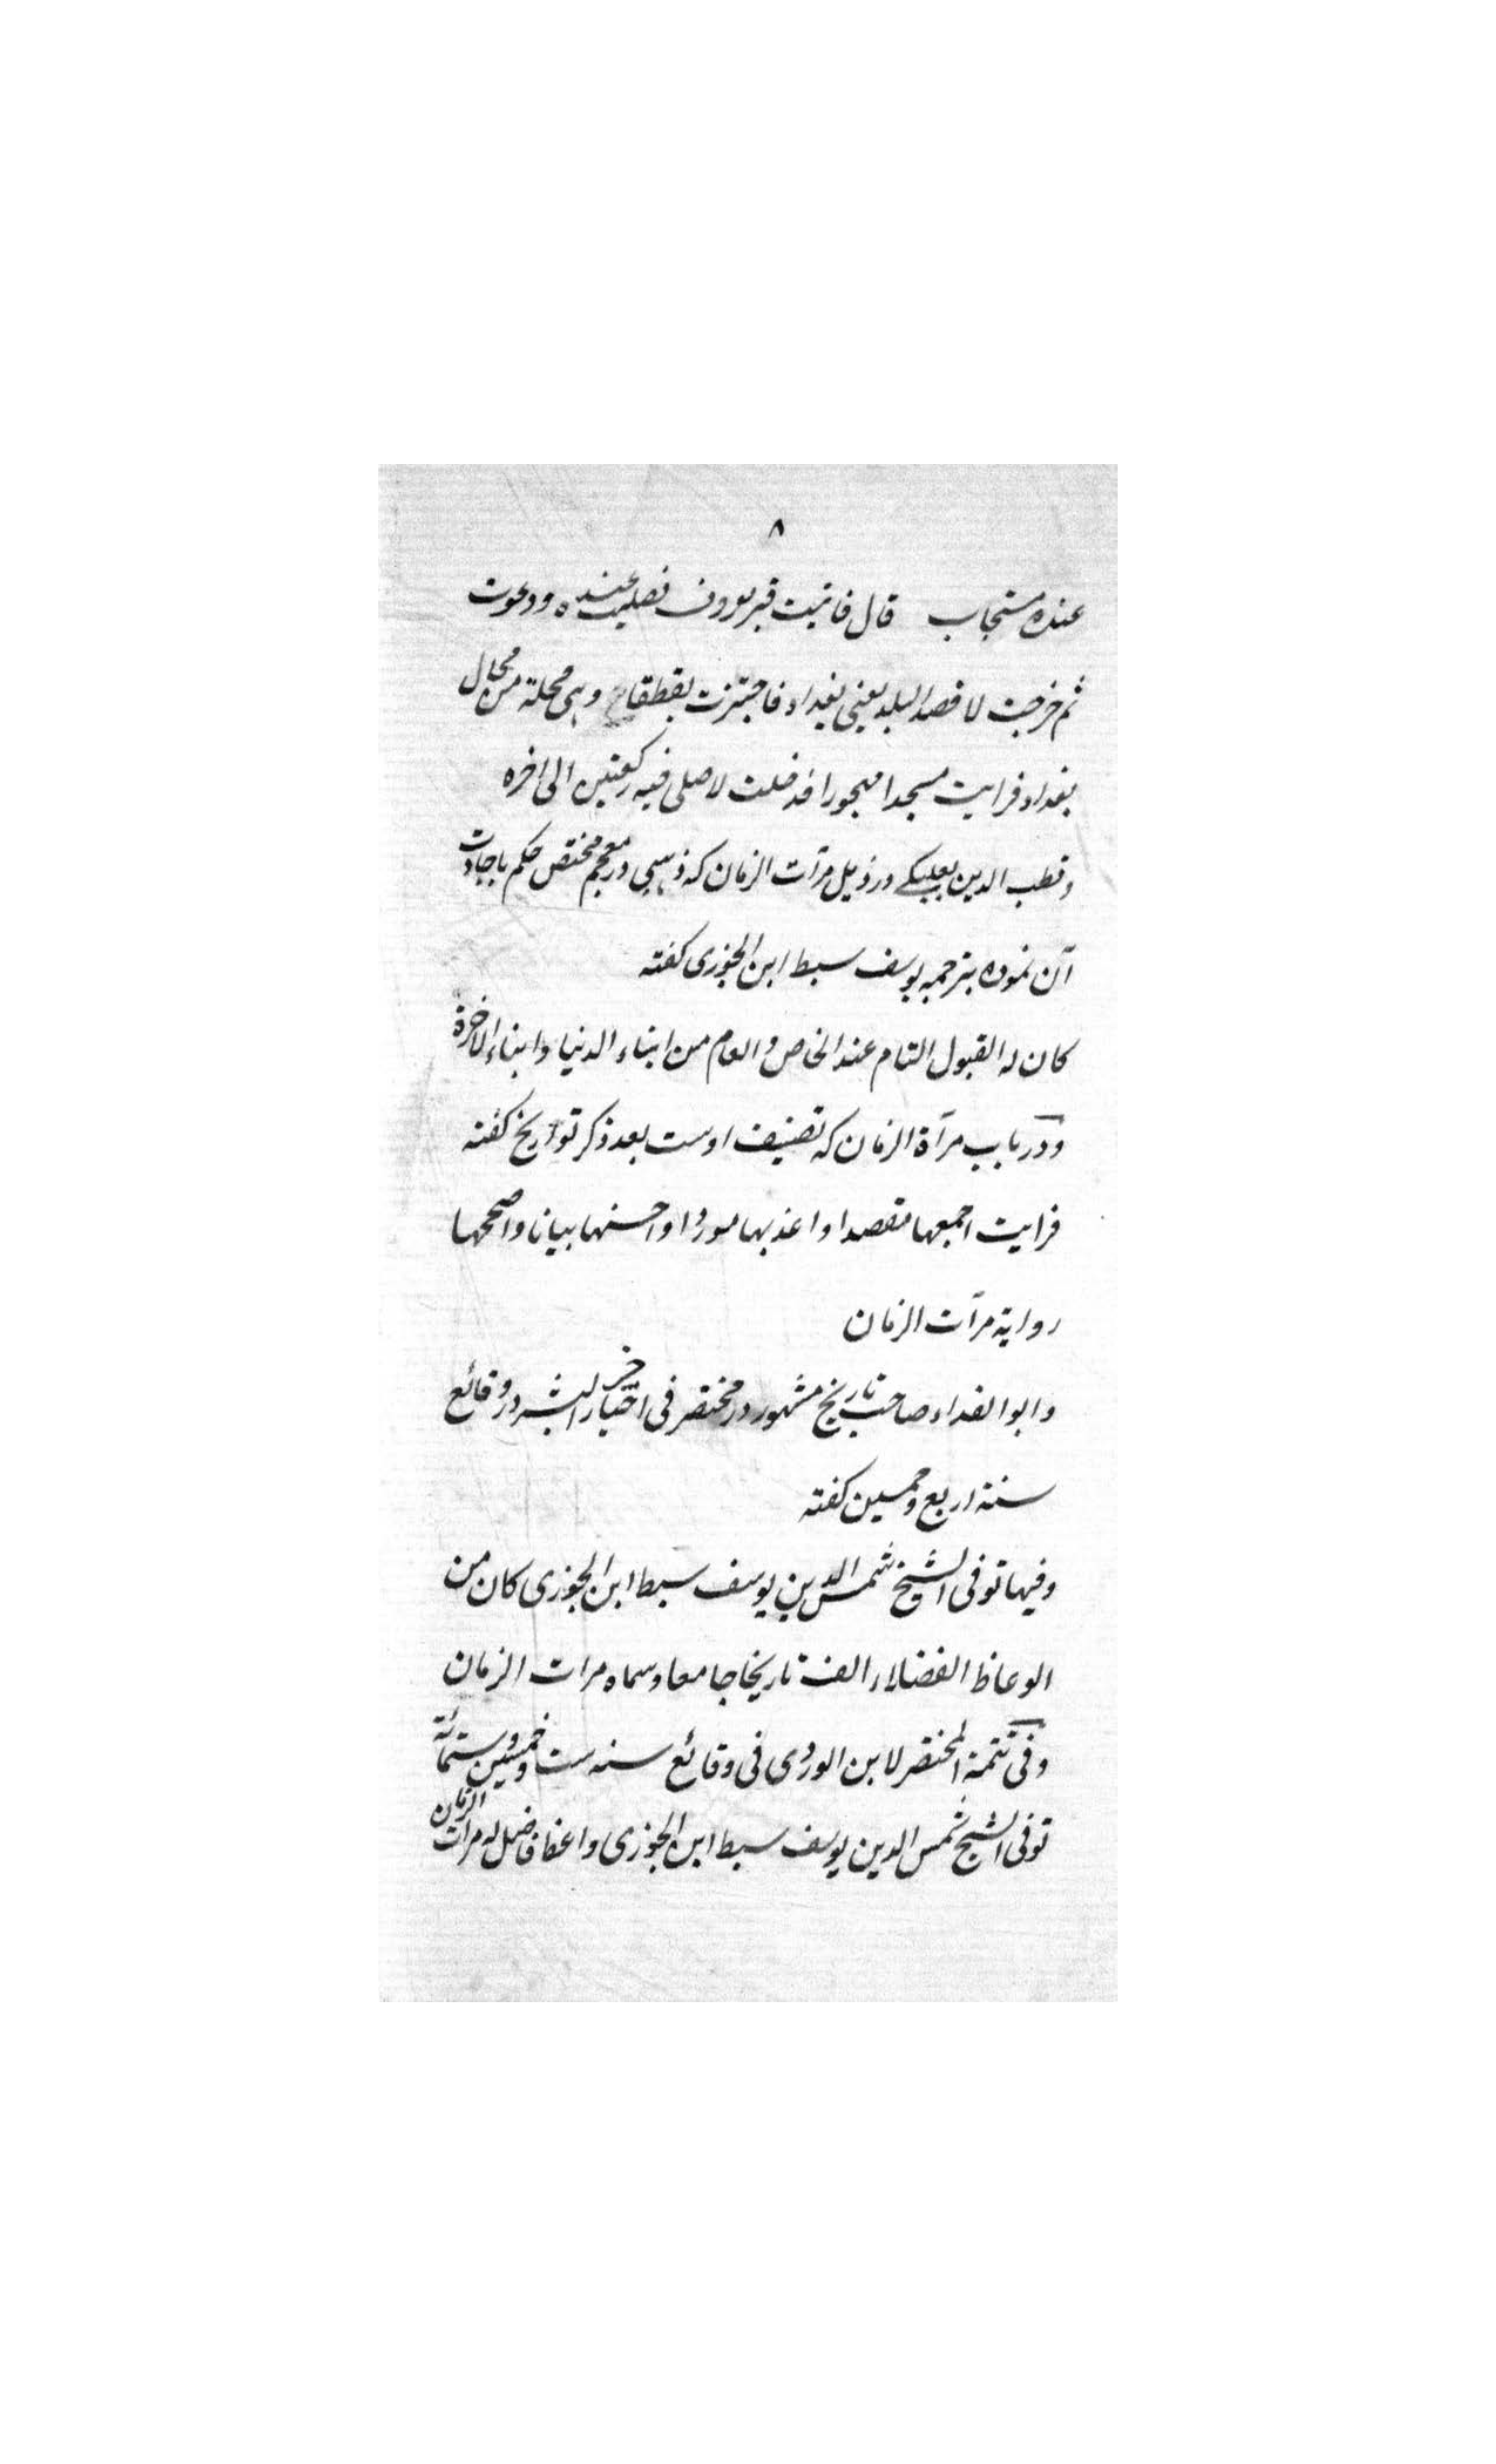 ۸
عنده مستجاب قال فاتیت قبر معروف فصلیت عنده ودعوت
ثم خرجت لاقصد البلد یعنی بغداد فاجتزت بقطقتا وهی محلة من محال
بغداد فرایت مسجدا مهجورا فدخلت لاصلی فیه رکعتین الی اخره
وقطب الدین بعلبکی در ذیل مرآت الزمان که ذهبی در معجم مختص حکم باجادت
آن نموده بترجمه یوسف سبط ابن الجوزی گفته
کان له القبول التام عند الخاص والعام من ابناء الدنیا وابناء الاخرة
ودر باب مرآة الزمان که تصنیف اوست بعد ذکر تواریخ گفته
فرایت اجمعها مقصدا واعذبها موردا واحسنها بیانا واصححها
روایة مرآت الزمان
وابو الفداء صاحب تاریخ مشهور در مختصر فی اخبار البشر در وقائع
سنة اربع وخمسین گفته
وفیها توفی الشیخ شمس الدین یوسف سبط ابن الجوزی کان من
الوعاظ الفضلاء الف تاریخا جامعا وسماه مرات الزمان
وفی تتمة المختصر لابن الوردی فی وقائع سنه ست وخمسین وستمائة
توفی الشیخ شمس الدین یوسف سبط ابن الجوزی واعظ فاضل له مرآت الزمان